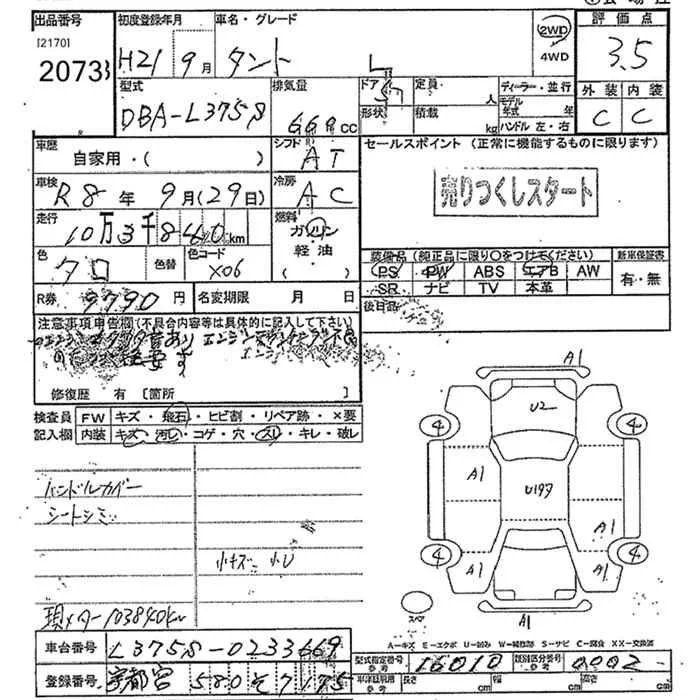 出品番号
[2170]
2073
初度登録年月
H21 9月
車名・グレード
タント L
2WD
4WD
評価点
3.5
外装 内装
C C
型式
DBA-L375S
排気量
cc
ドア
形状
定員
人
積載
kg
ディーラー・並行
モデル
年式 年
ハンドル 左・右
車歴
自家用・( )
シフト
AT
車検
R8年 9月(29日)
冷房
AC
走行
10万3千840km
燃料
ガソリン
軽油
( )
色
クロ
色替
色コード
X06
R券
9790円
名変期限 月 日
セールスポイント (正常に機能するものに限ります)
売りつくしスタート
装備品(純正品に限り○をつけてください)
PS PW ABS エアB AW
SR ナビ TV 本革
新車保証書
有・無
後日品
注意事項申告欄(不具合内容等は具体的に記入して下さい)
修復歴 有 [箇所 ]
検査員
記入欄
FW キズ・飛石・ヒビ割・リペア跡・×要
内装 キズ・汚レ・コゲ・穴・スレ・キレ・破レ
ハンドルカバー
シートシミ
小キズ 小U
現メーター103840km
A1
U2
4 4
A1
U197
A1
4 4
A1
A1
スペア
A1
A-キズ E-エクボ U-凹み W-補修跡 S-サビ C-腐食 XX-交換済
車台番号
L375S-0233669
登録番号
宇都宮 580 そ 7175
型式指定番号
参考
16010
類別区分番号
参考
0002
参考
長さ cm
幅 cm
高さ cm